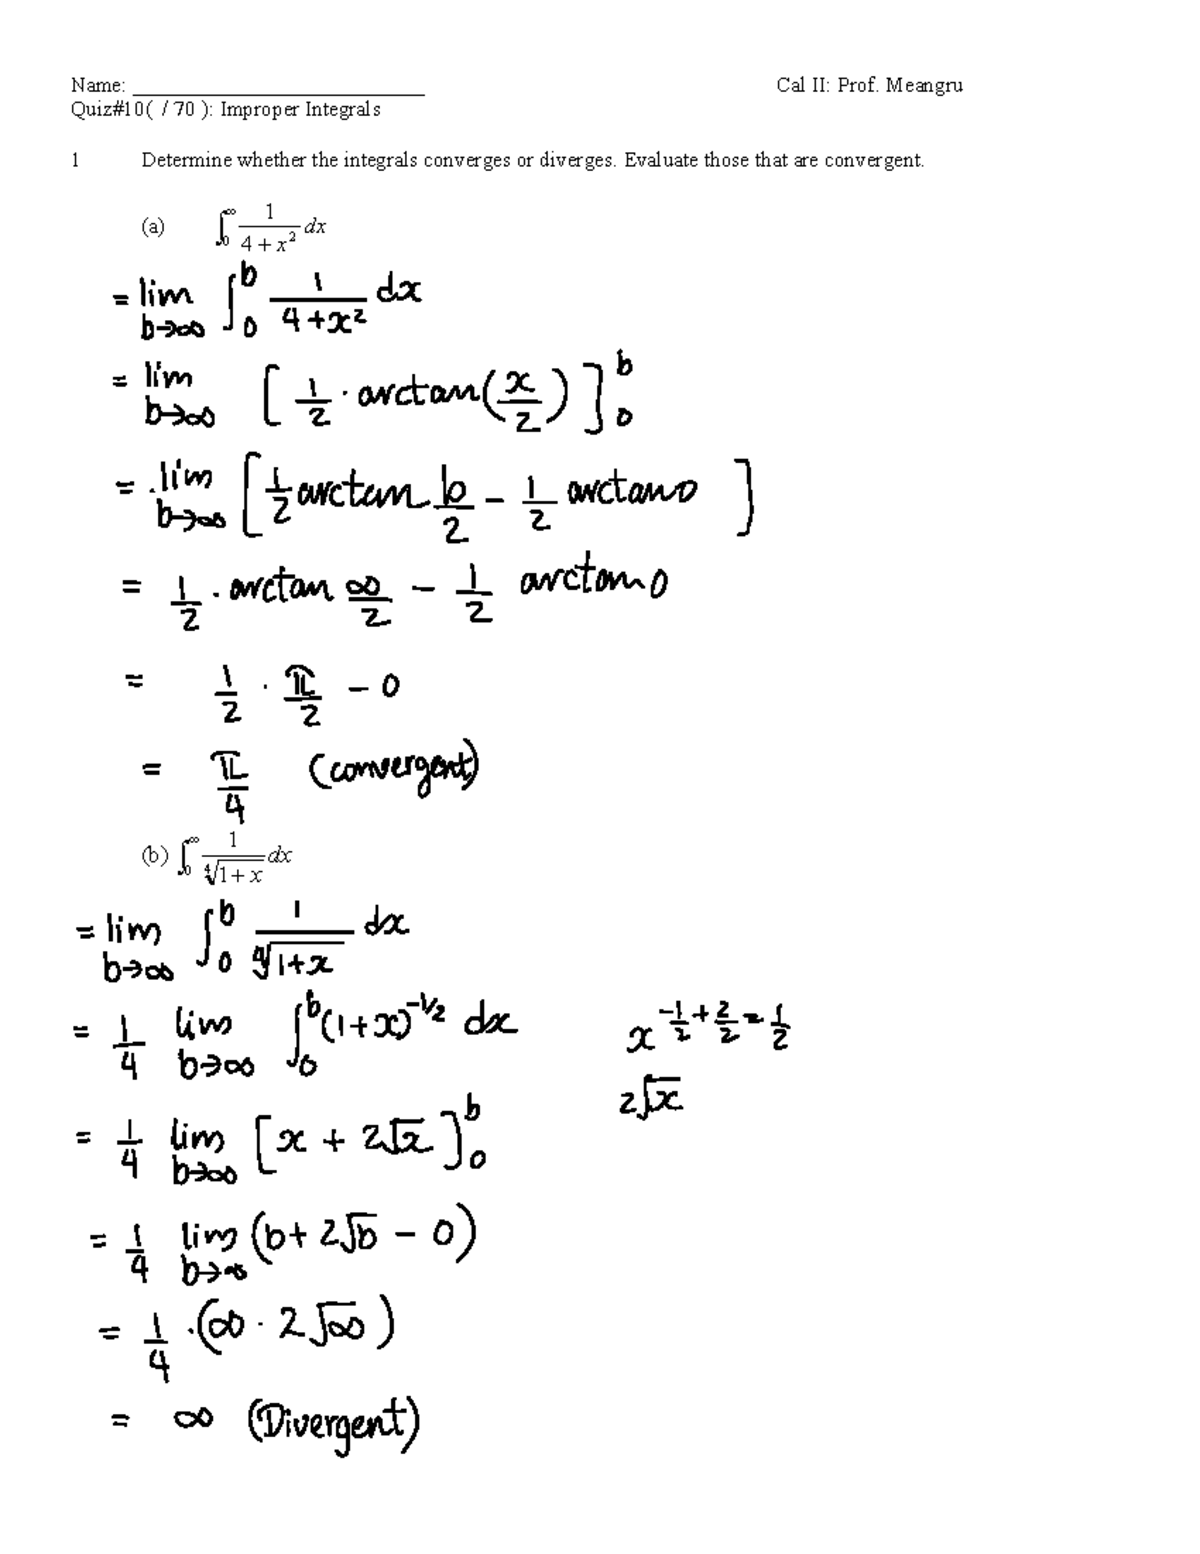 Name: ____________________________ Cal II: Prof. Meangru
Quiz#10( / 70 ): Improper Integrals
1 Determine whether the integrals converges or diverges. Evaluate those that are convergent.
(a) ∫₀^∞ 1/(4 + x²) dx
= lim b→∞ ∫₀^b 1/(4+x²) dx
= lim b→∞ [1/2 · arctan(x/2)]₀^b
= .lim b→∞ [1/2 arctan b/2 − 1/2 arctan0]
= 1/2 · arctan ∞/2 − 1/2 arctan0
= 1/2 · π/2 − 0
= π/4 (convergent)
(b) ∫₀^∞ 1/∜(1+x) dx
= lim b→∞ ∫₀^b 1/∜(1+x) dx
= 1/4 lim b→∞ ∫₀^b (1+x)^(-1/2) dx x^(-1/2 + 2/2 = 1/2)
2√x
= 1/4 lim b→∞ [x + 2√x]₀^b
= 1/4 lim b→∞ (b + 2√b − 0)
= 1/4 · (∞ · 2√∞)
= ∞ (Divergent)